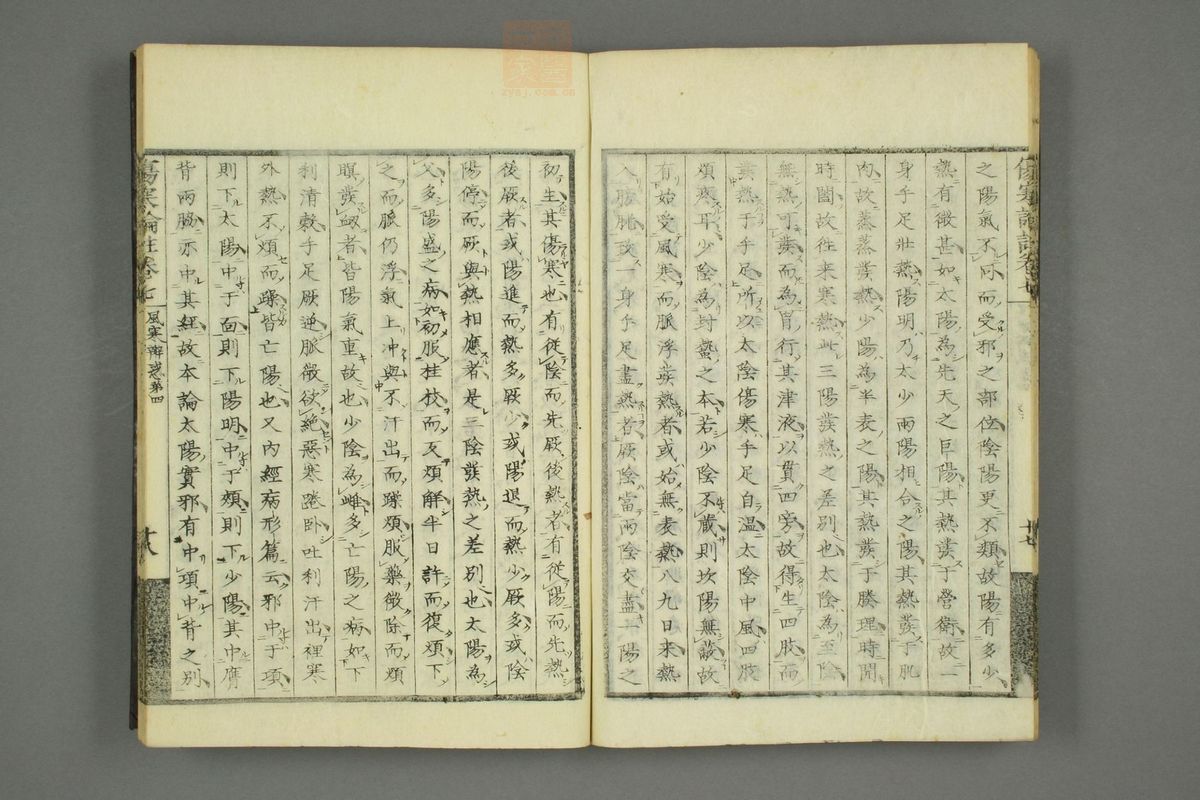 之陽氣不同而受邪之部位陰陽更不類故陽有多少
熱有微甚如太陽為先天之巨陽其熱發于營衛故一
身手足壯熱陽明乃太少兩陽相合之陽其熱發于肌
肉故蒸蒸發熱少陽為半表之陽其熱發于腠理時開
時闔故往來寒熱此三陽發熱之差別也太陰為至陰
無熱可發而為胃行其津液以貫四旁故得主四肢而
發熱于手足所以太陰傷寒手足自溫太陰中風四肢
煩疼耳少陰為封蟄之本若少陰不藏則坎陽無蔽故
有始受風寒而脈浮發熱者或始無表熱八九日來熱
入膀胱致一身手足盡熱者厥陰當兩陰交盡一陽之
初生其傷寒也有從陰而先厥後熱者有從陽而先熱
後厥者或陽進而熱多厥少或陽退而熱少厥多或陰
陽停而厥與熱相應者是三陰發熱之差別也太陽為
父多陽盛之病如初服桂枝而反煩解半日許而復煩下
之而脈仍浮氣上冲與不汗出而躁煩服藥微除而煩
瞑發衄者皆陽氣重故也少陰為雌多亡陽之病如下
利清穀手足厥逆脈微欲絕惡寒踡臥吐利汗出裡寒
外熱不煩而躁皆亡陽也又內經病形篇云邪中于項
則下太陽中于面則下陽明中于頰則下少陽其中膺
背兩脇亦中其經故本論太陽實邪有中項中背之別
傷寒論註卷七
風寒辨惑第四
廿七
廿八
zysj.com.cn